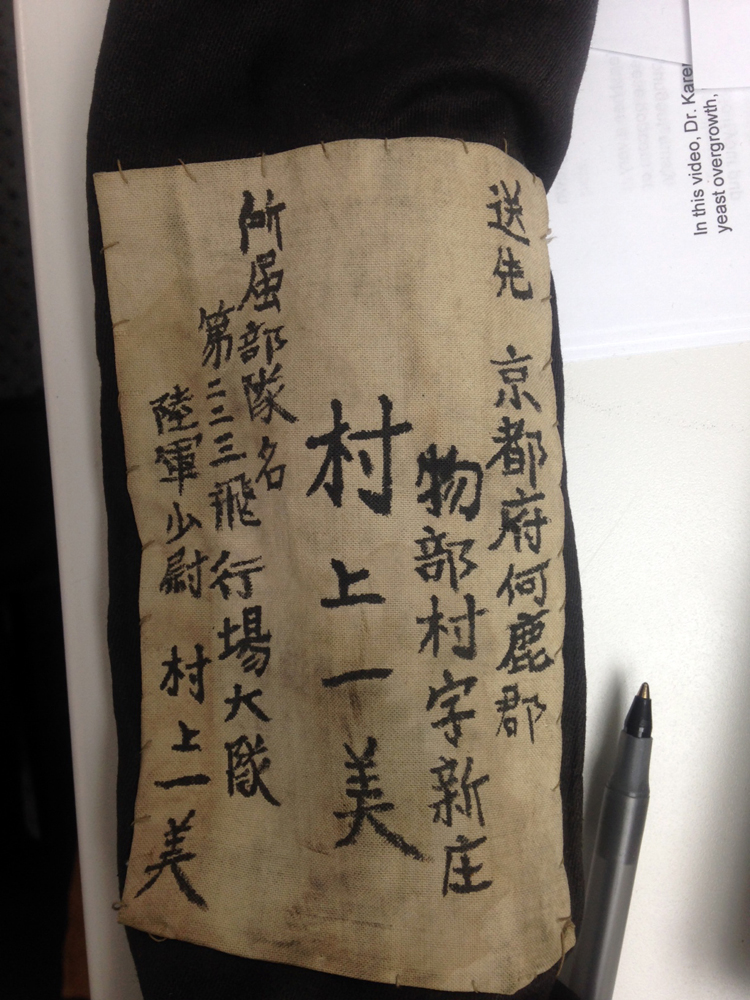 送先 京都府何鹿郡
物部村字新庄
村上一美
所属部隊名
第二二三飛行場大隊
陸軍少尉 村上一美
In this video, Dr.
yeast overgrowth,